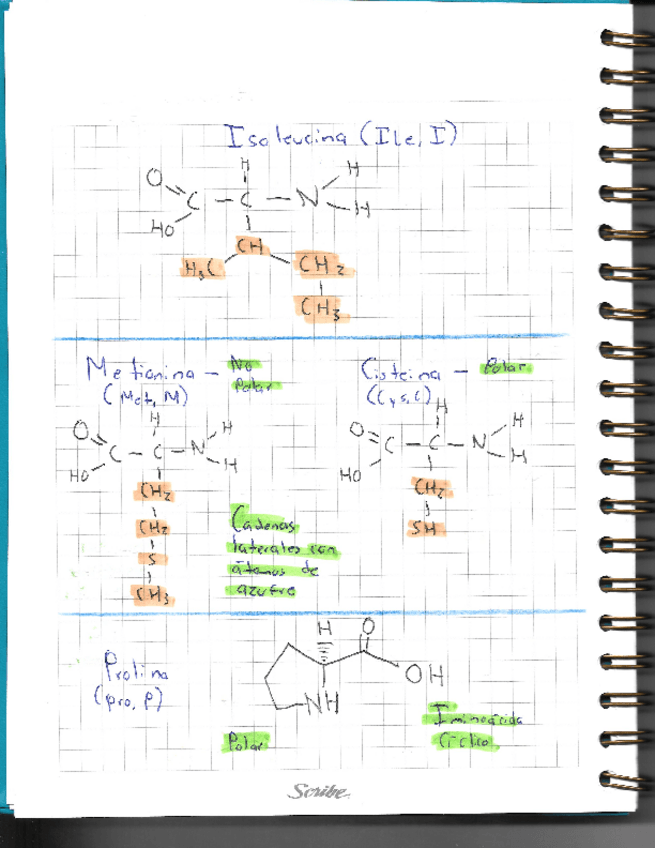 Isoleucina (Ile, I)
O H H
C - C - N
HO H
CH
H3C CH2
CH3
Metionina - No
Polar
(Met, M)
Cisteína - Polar
(Cys, C)
H
O H
C - C - N
HO H
CH2
CH2
S
CH3
H
O H
C - C - N
HO H
CH2
SH
Cadenas
laterales con
átomos de
azufre
Prolina
(pro, P)
H O
OH
NH
Polar
Iminoácido
Cíclico
Scribe